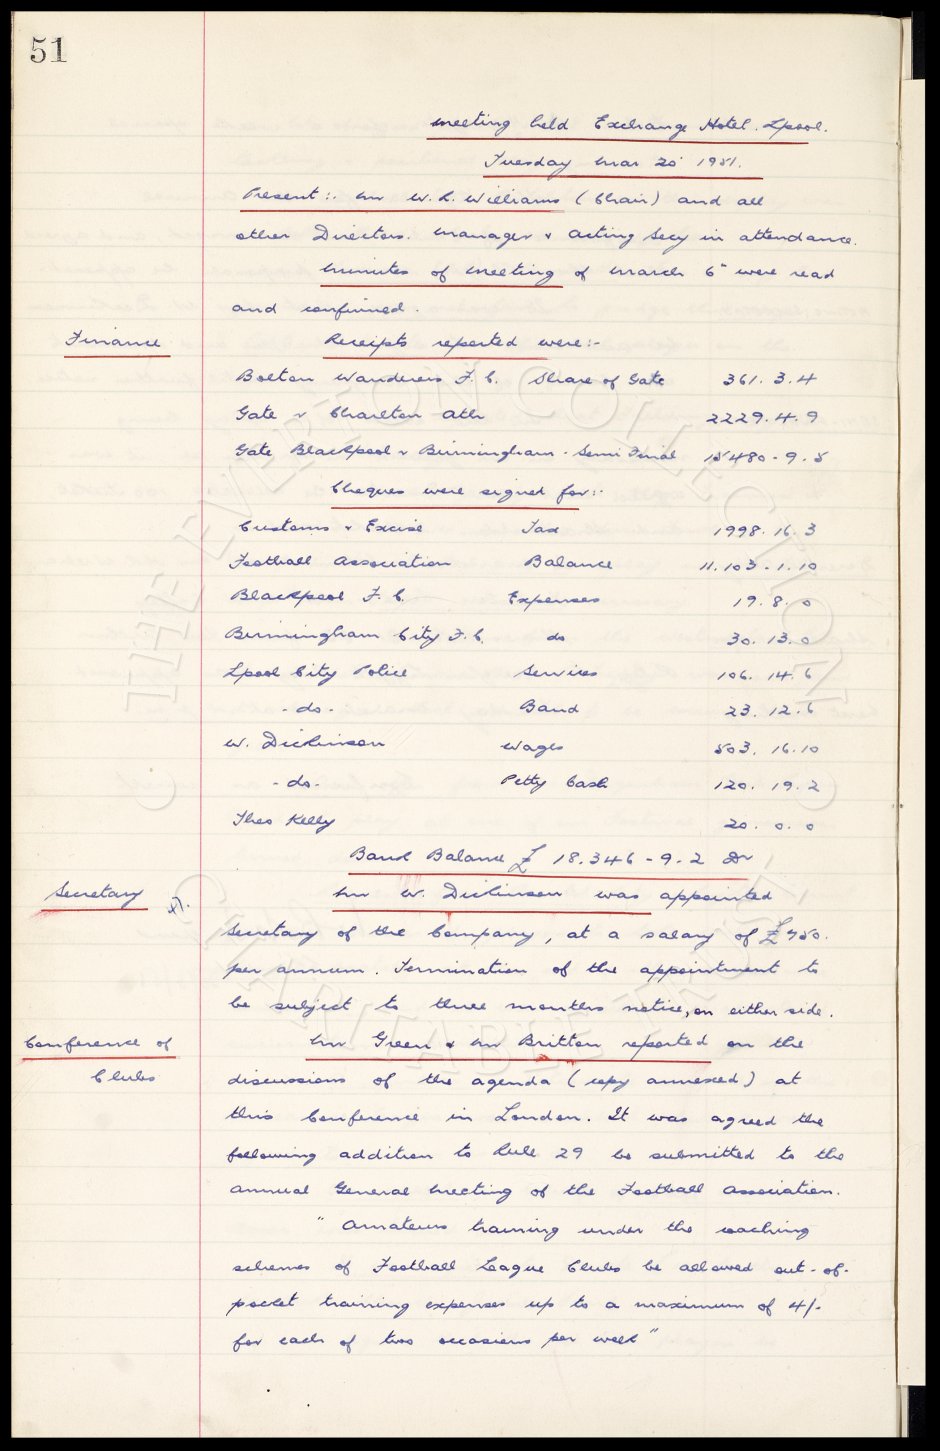 51
Meeting held Exchange Hotel. Lpool.
Tuesday Mar 20 1951.
Present:. Mr W.R. Williams (Chair) and all
other Directors. Manager & Acting Secy in attendance.
Minutes of Meeting of March 6th were read
and confirmed.
Finance
Receipts reported were:-
Bolton Wanderers F.C. Share of Gate 361. 3. 4
Gate v Charlton Ath 2229. 4. 9
Gate Blackpool v Birmingham - Semi Final 15480 - 9. 5
Cheques were signed for:-
Customs & Excise Tax 1998. 16. 3
Football Association Balance 11.103 - 1. 10
Blackpool F.C. Expenses 19. 8. 0
Birmingham City F.C. do 30. 13. 0
Lpool City Police Services 106. 14. 6
- do - Band 23. 12. 6
W. Dickinson Wages 503. 16. 10
- do - Petty Cash 120. 19. 2
Theo Kelly 20. 0. 0
Bank Balance £ 18.346 - 9. 2 Dr
Secretary
Mr W. Dickinson was appointed
Secretary of the Company, at a salary of £750.
per annum. Termination of the appointment to
be subject to three months notice, on either side.
Conference of
Clubs
Mr Green & Mr Britton reported on the
discussions of the agenda (copy annexed) at
this Conference in London. It was agreed the
following addition to Rule 29 be submitted to the
Annual General Meeting of the Football Association.
" Amateurs training under the coaching
schemes of Football League Clubs be allowed out-of-
pocket training expenses up to a maximum of 4/-
for each of two occasions per week"
© THE EVERTON COLLECTION CHARITABLE TRUST